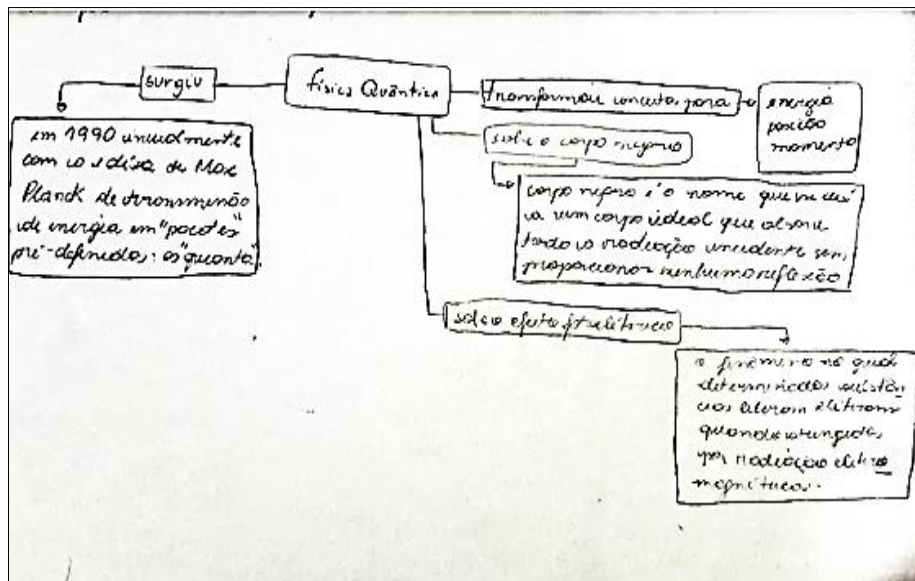 surgiu
física Quântica
em 1990 inicialmente
com a ideia de Max
Planck de transmissão
de energia em "pacotes"
pré-definidos: os "quanta".
conceitos para
energia
posição
momento
sobre o corpo negro
corpo negro é o nome que se dá
a um corpo ideal que absorve
toda a radiação incidente sem
proporcionar nenhuma reflexão
sobre o efeito fotoelétrico
o fenômeno no qual
determinadas
liberam elétrons
quando atingidas
por radiação eletro
magnéticas.